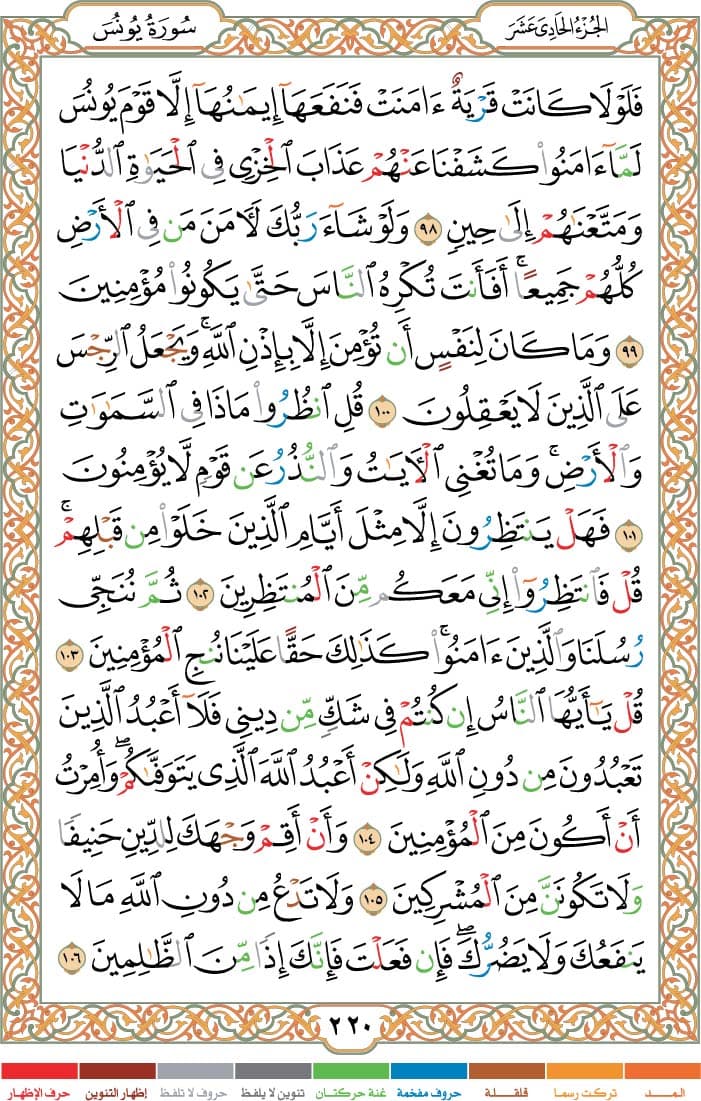 الجزء الحادى عشر
سورة يونس
فَلَوْلَا كَانَتْ قَرْيَةٌ ءَامَنَتْ فَنَفَعَهَآ إِيمَـٰنُهَآ إِلَّا قَوْمَ يُونُسَ
لَمَّآ ءَامَنُوا۟ كَشَفْنَا عَنْهُمْ عَذَابَ ٱلْخِزْىِ فِى ٱلْحَيَوٰةِ ٱلدُّنْيَا
وَمَتَّعْنَـٰهُمْ إِلَىٰ حِينٍ ٩٨ وَلَوْ شَآءَ رَبُّكَ لَـَٔامَنَ مَن فِى ٱلْأَرْضِ
كُلُّهُمْ جَمِيعًا ۚ أَفَأَنتَ تُكْرِهُ ٱلنَّاسَ حَتَّىٰ يَكُونُوا۟ مُؤْمِنِينَ
٩٩ وَمَا كَانَ لِنَفْسٍ أَن تُؤْمِنَ إِلَّا بِإِذْنِ ٱللَّهِ ۚ وَيَجْعَلُ ٱلرِّجْسَ
عَلَى ٱلَّذِينَ لَا يَعْقِلُونَ ١٠٠ قُلِ ٱنظُرُوا۟ مَاذَا فِى ٱلسَّمَـٰوَٰتِ
وَٱلْأَرْضِ ۚ وَمَا تُغْنِى ٱلْـَٔايَـٰتُ وَٱلنُّذُرُ عَن قَوْمٍ لَّا يُؤْمِنُونَ
١٠١ فَهَلْ يَنتَظِرُونَ إِلَّا مِثْلَ أَيَّامِ ٱلَّذِينَ خَلَوْا۟ مِن قَبْلِهِمْ ۚ
قُلْ فَٱنتَظِرُوٓا۟ إِنِّى مَعَكُم مِّنَ ٱلْمُنتَظِرِينَ ١٠٢ ثُمَّ نُنَجِّى
رُسُلَنَا وَٱلَّذِينَ ءَامَنُوا۟ ۚ كَذَٰلِكَ حَقًّا عَلَيْنَا نُنجِ ٱلْمُؤْمِنِينَ ١٠٣
قُلْ يَـٰٓأَيُّهَا ٱلنَّاسُ إِن كُنتُمْ فِى شَكٍّ مِّن دِينِى فَلَآ أَعْبُدُ ٱلَّذِينَ
تَعْبُدُونَ مِن دُونِ ٱللَّهِ وَلَـٰكِنْ أَعْبُدُ ٱللَّهَ ٱلَّذِى يَتَوَفَّىٰكُمْ ۖ وَأُمِرْتُ
أَنْ أَكُونَ مِنَ ٱلْمُؤْمِنِينَ ١٠٤ وَأَنْ أَقِمْ وَجْهَكَ لِلدِّينِ حَنِيفًا
وَلَا تَكُونَنَّ مِنَ ٱلْمُشْرِكِينَ ١٠٥ وَلَا تَدْعُ مِن دُونِ ٱللَّهِ مَا لَا
يَنفَعُكَ وَلَا يَضُرُّكَ ۖ فَإِن فَعَلْتَ فَإِنَّكَ إِذًا مِّنَ ٱلظَّـٰلِمِينَ ١٠٦
٢٢٠
المـــد تركت رسما قلقـلـة حروف مفخمة غنة حركتـان تنوين لا يلفظ حروف لا تلفظ إظهار التنوين حرف الإظهار